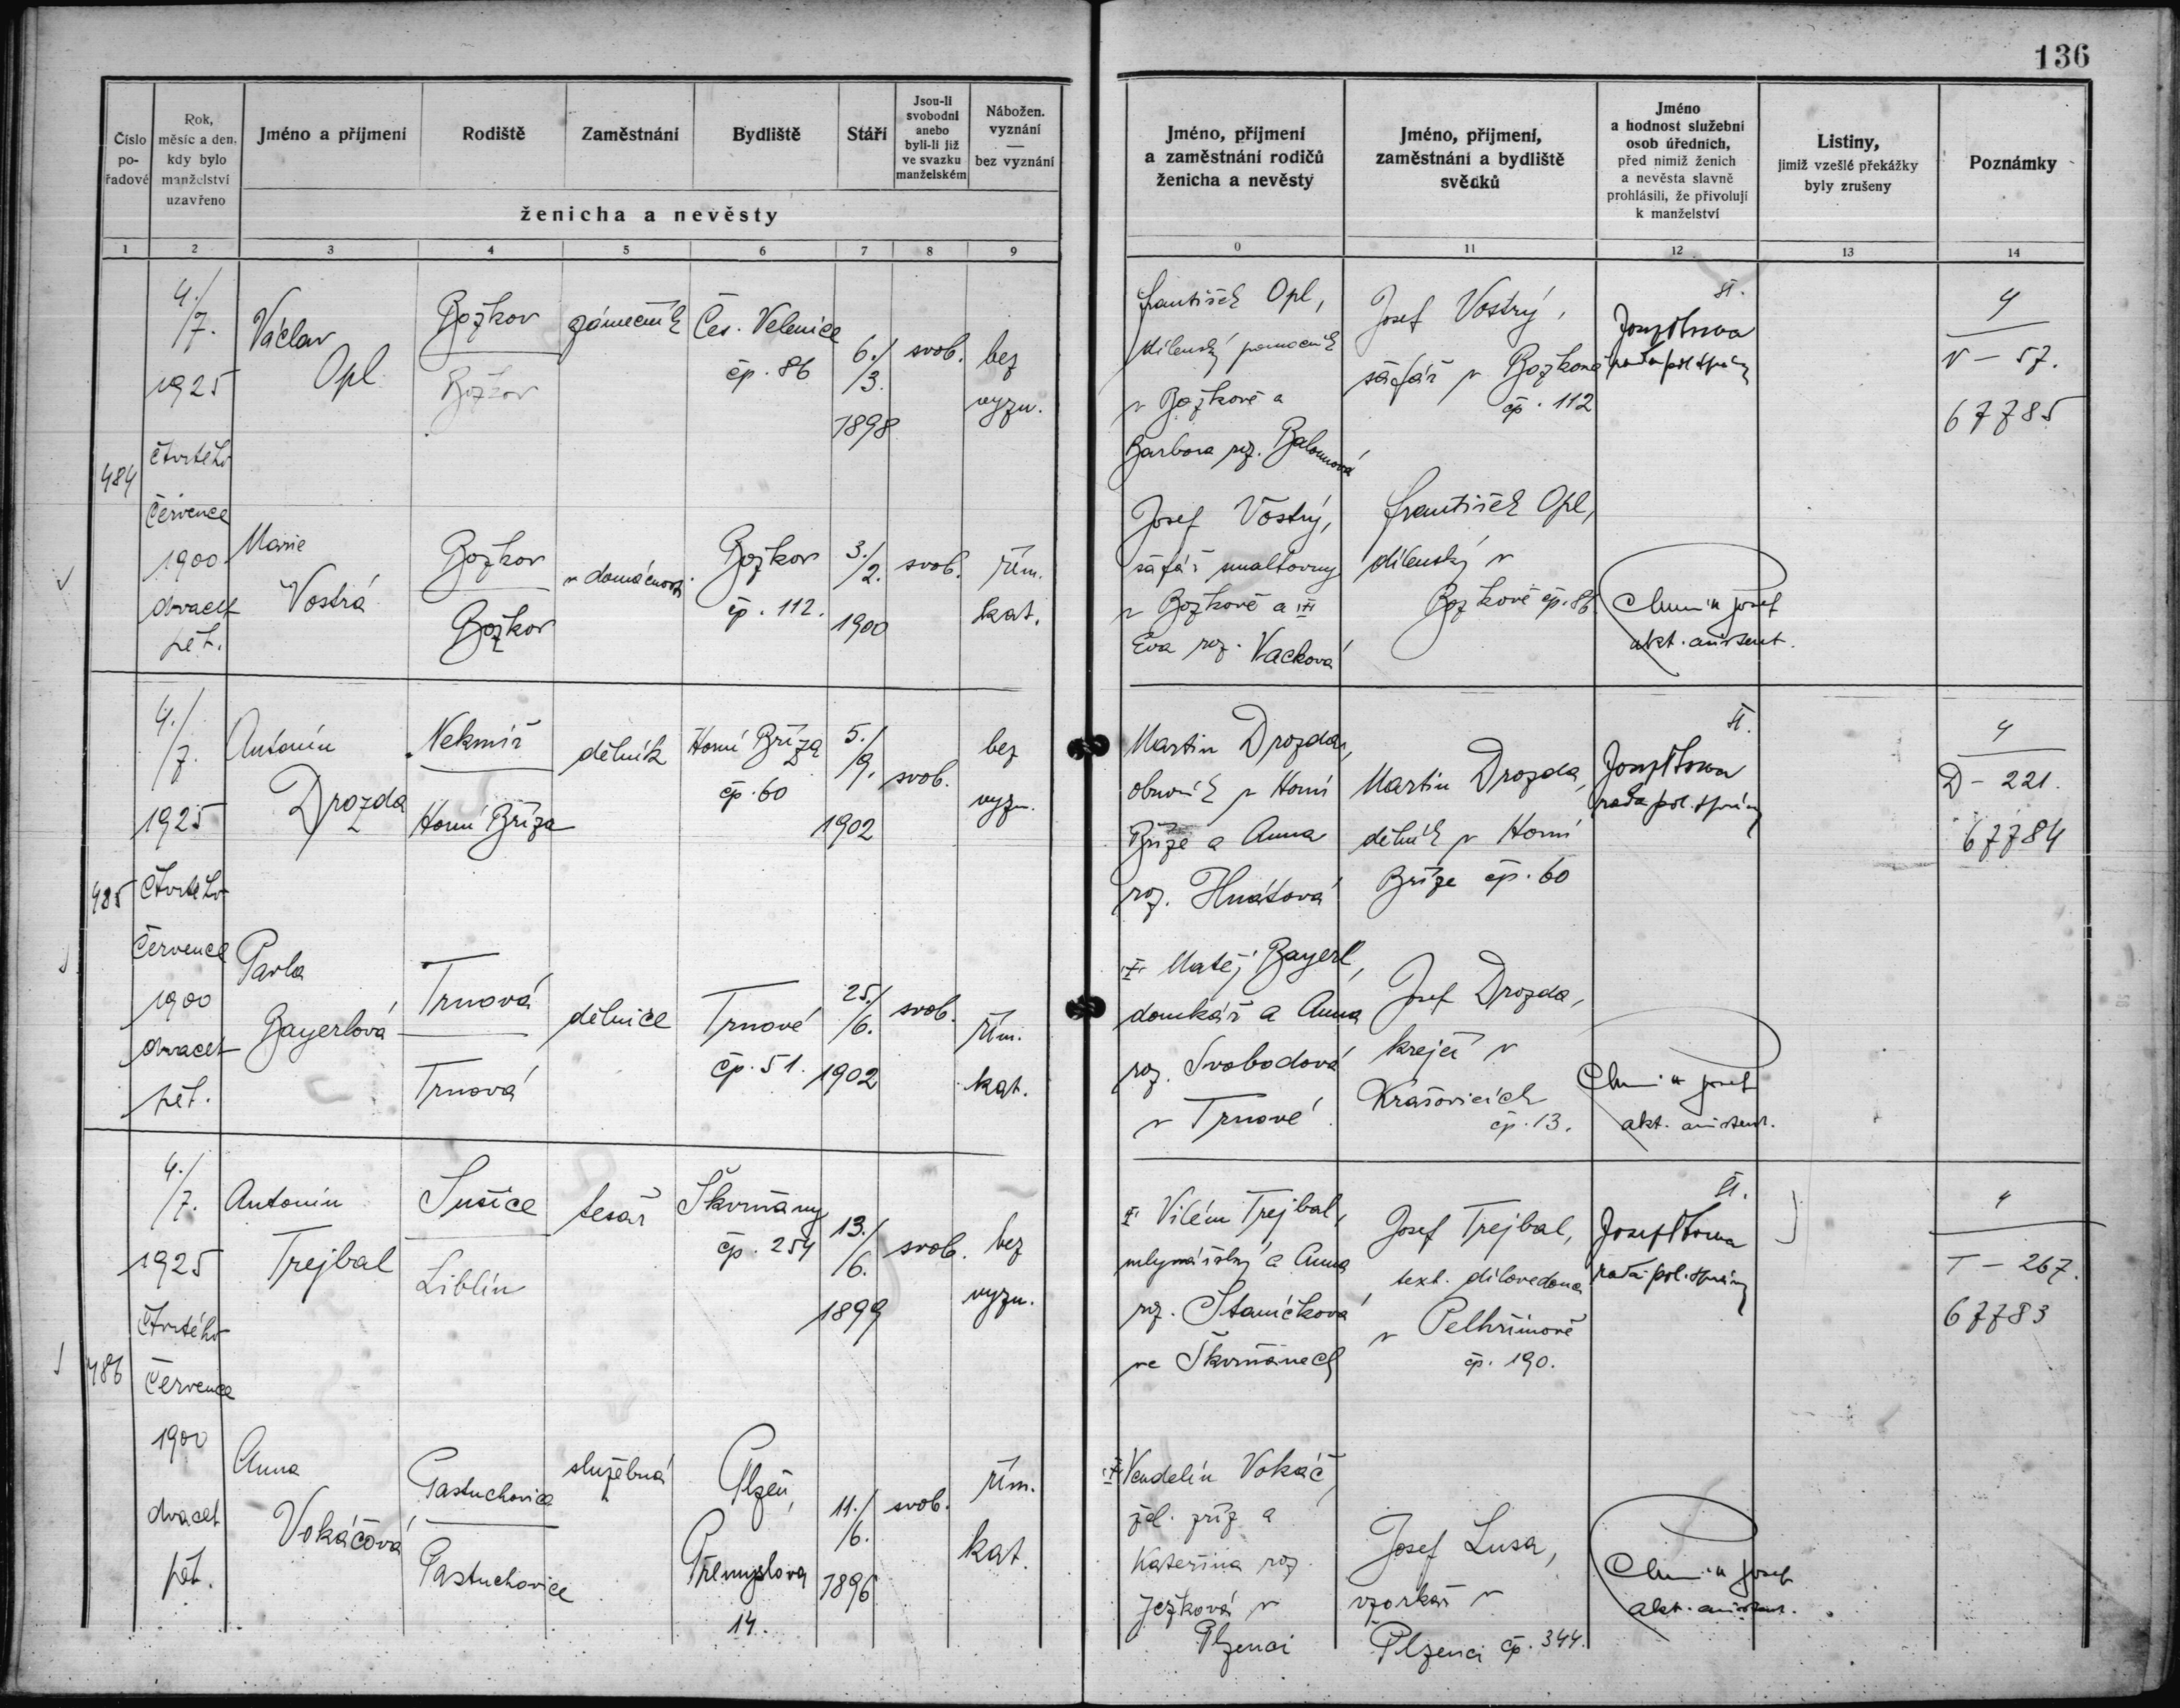 136
Číslo
po-
řadové
Rok,
měsíc a den,
kdy bylo
manželství
uzavřeno
Jméno a příjmení
Rodiště
Zaměstnání
Bydliště
Stáří
Jsou-li
svobodni
anebo
byli-li již
ve svazku
manželském
Nábožen.
vyznání
—
bez vyznání
ženicha a nevěsty
Jméno, příjmení
a zaměstnání rodičů
ženicha a nevěsty
Jméno, příjmení,
zaměstnání a bydliště
svědků
Jméno
a hodnost služební
osob úředních,
před nimiž ženich
a nevěsta slavně
prohlásili, že přivolují
k manželství
Listiny,
jimiž vzešlé překážky
byly zrušeny
Poznámky
1 2 3 4 5 6 7 8 9 0 11 12 13 14
484
4./
/7.
1925
čtvrtého
července
1900
dvacet
pět.
Václav
Opl
Božkov
Božkov
zámečník
Čes. Velenice
čp. 86
6./
/3.
1898
svob.
bez
vyzn.
František Opl,
dílenský pomocník
v Božkově a
Barbora roz.
Josef Vostrý,
šafář v Božkově
čp. 112
rada pol. správy
4
V - 57.
67785
Marie
Vostrá
Božkov
Božkov
v domácnosti
Božkov
čp. 112.
3./
/2.
1900
svob.
řím.
kat.
Josef Vostrý,
šafář smaltovny
v Božkově a
Eva roz. Vacková
František Opl,
dílenský v
Božkově čp. 86
Josef
akt. asistent.
485
4./
/7.
1925
čtvrtého
července
1900
dvacet
pět.
Antonín
Drozda
Nekmíř
Horní Bříza
dělník
Horní Bříza
čp. 60
5./
/9.
1902
svob.
bez
vyzn.
Martin Drozda,
obuvník v Horní
Bříze a Anna
roz. Hnátová
Martin Drozda,
dělník v Horní
Bříze čp. 60
rada pol. správy
4
D - 221.
67784
Pavla
Bayerlová
Trnová
Trnová
dělnice
Trnové
čp. 51.
25./
/6.
1902
svob.
řím.
kat.
Matěj Bayerl,
domkář a Anna
roz. Svobodová
v Trnové
Josef Drozda,
krejčí v
Krašovicích
čp. 13.
Josef
akt. asistent.
486
4./
/7.
1925
čtvrtého
července
1900
dvacet
pět.
Antonín
Trejbal
Sušice
Liblín
tesař
Škvrňany
čp. 254
13./
/6.
1899
svob.
bez
vyzn.
Vilém Trejbal,
mlynářský a Anna
roz. Staníčková
ve Škvrňanech
Josef Trejbal,
text. dílovedoucí
v Pelhřimově
čp. 190.
rada pol. správy
4
T - 267.
67783
Anna
Vokáčová
Pastuchovice
Pastuchovice
služebná
Plzeň,
Přemyslova
14.
11./
/6.
1896
svob.
řím.
kat.
Vendelín Vokáč,
žel. zříz. a
Kateřina roz.
Ježková v
Plzenci
Josef Lusa,
vzorkář v
Plzenci čp. 344.
Josef
akt. asistent.